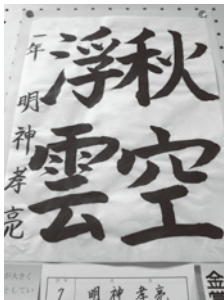 秋空
浮雲
一年 明神孝亮
が大きく
7 明神孝亮
金